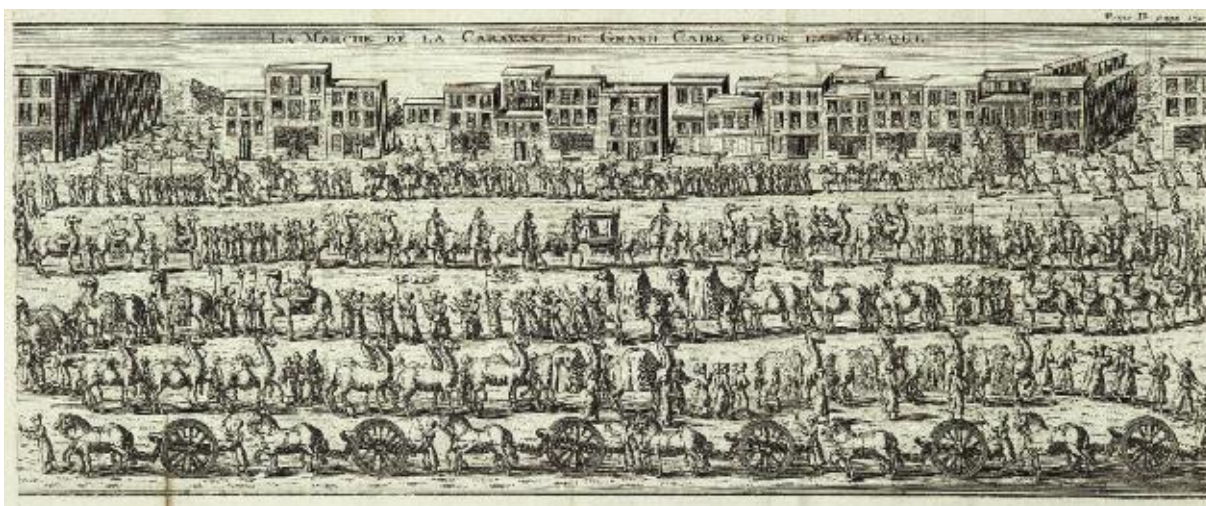 Tome II. page
LA MARCHE DE LA CARAVANE DU GRAND CAIRE POUR LA MECQUE